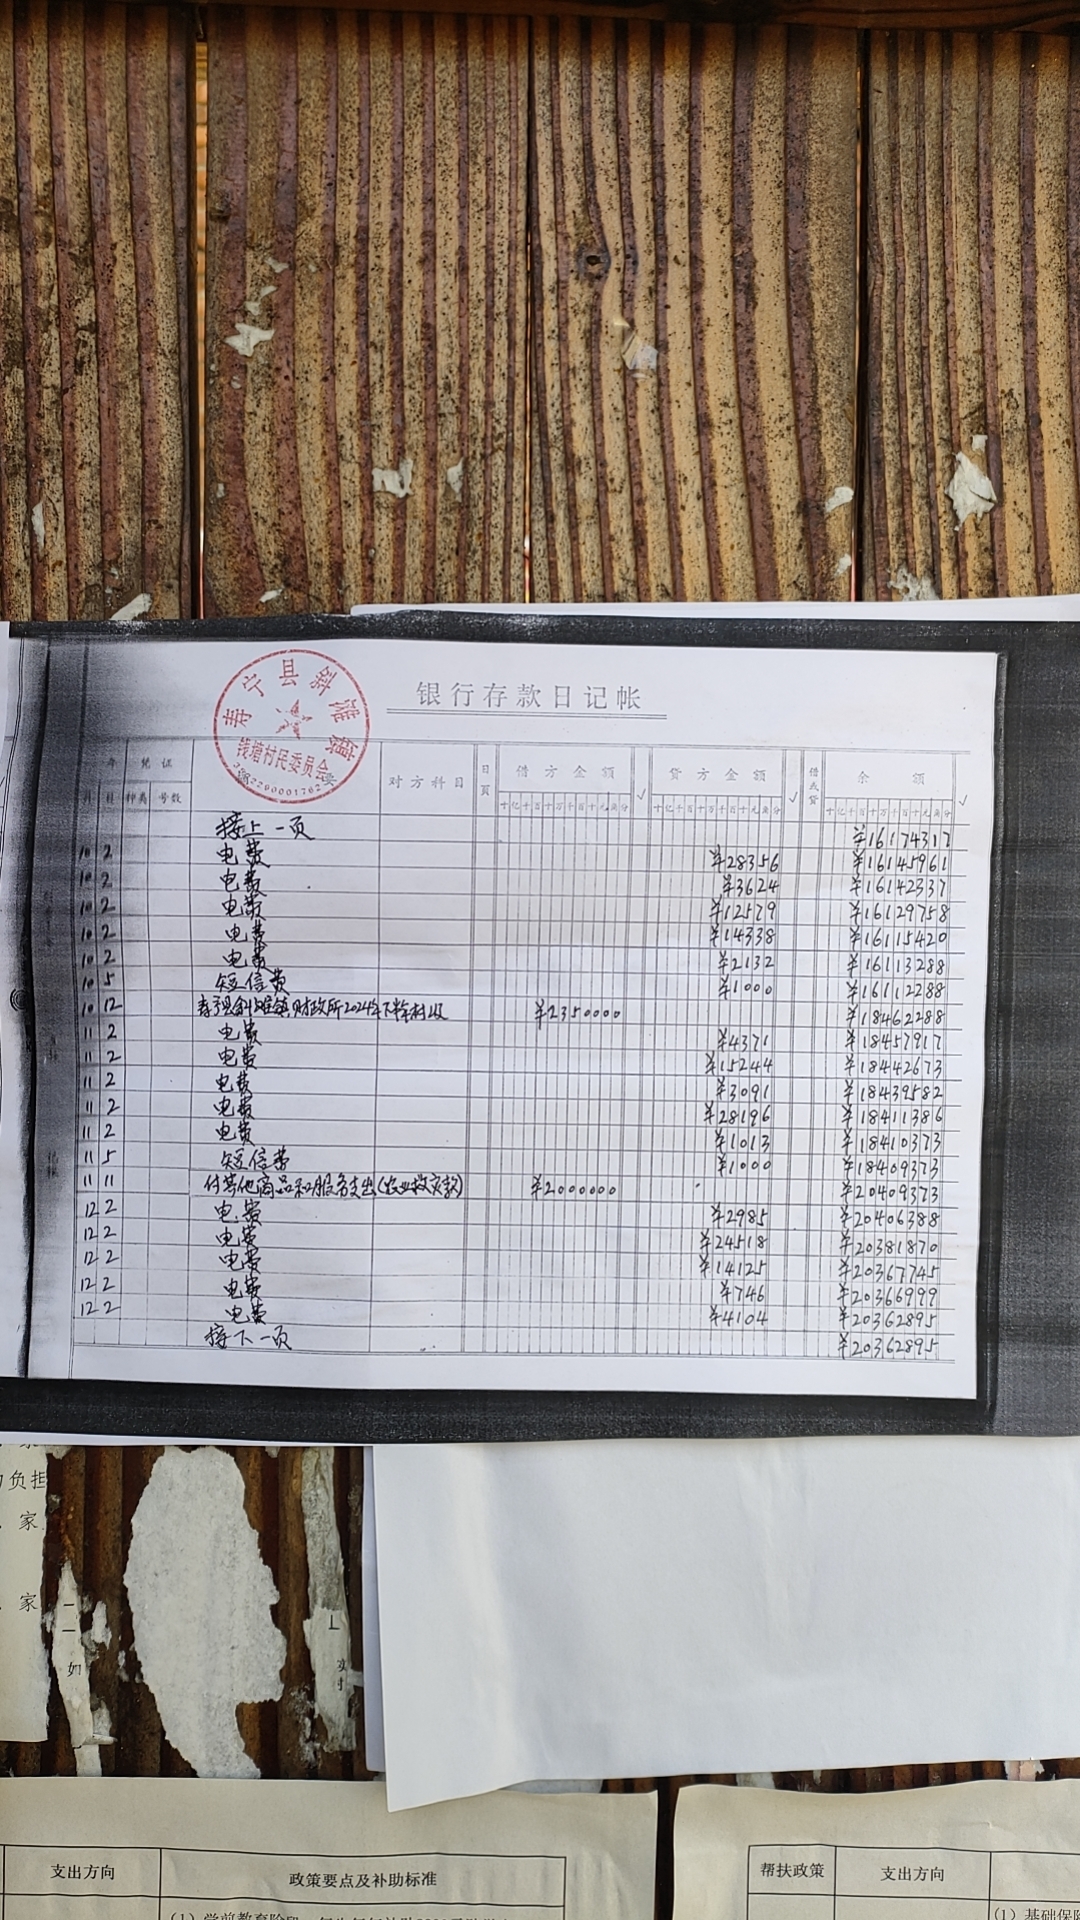 银行存款日记帐
寿宁县斜滩镇
钱塘村民委员会
年 凭证 对方科目 日页 借方金额 √ 贷方金额 √ 借或贷 余额 √
月 日 种类 号数 十亿千百十万千百十元角分 十亿千百十万千百十元角分 十亿千百十万千百十元角分
接上一页 ¥16174317
10 2 电费 ¥28356 ¥16145961
10 2 电费 ¥3624 ¥16142337
10 2 电费 ¥12579 ¥16129758
10 2 电费 ¥14338 ¥16115420
10 2 电费 ¥2132 ¥16113288
10 5 短信费 ¥1000 ¥16112288
10 12 寿宁县斜滩镇财政所2024年下半年村级 ¥2350000 ¥18462288
11 2 电费 ¥4371 ¥18457917
11 2 电费 ¥15244 ¥18442673
11 2 电费 ¥3091 ¥18439582
11 2 电费 ¥28196 ¥18411386
11 2 电费 ¥1013 ¥18410373
11 5 短信费 ¥1000 ¥18409373
11 11 付其他商品和服务支出(农业救灾款) ¥2000000 ¥20409373
12 2 电费 ¥2985 ¥20406388
12 2 电费 ¥24518 ¥20381870
12 2 电费 ¥14125 ¥20367745
12 2 电费 ¥746 ¥20366999
12 2 电费 ¥4104 ¥20362895
接下一页 ¥20362895
负担
家
家
如
支出方向 政策要点及补助标准
(1)学前教育阶段
帮扶政策 支出方向
(1)基础保障